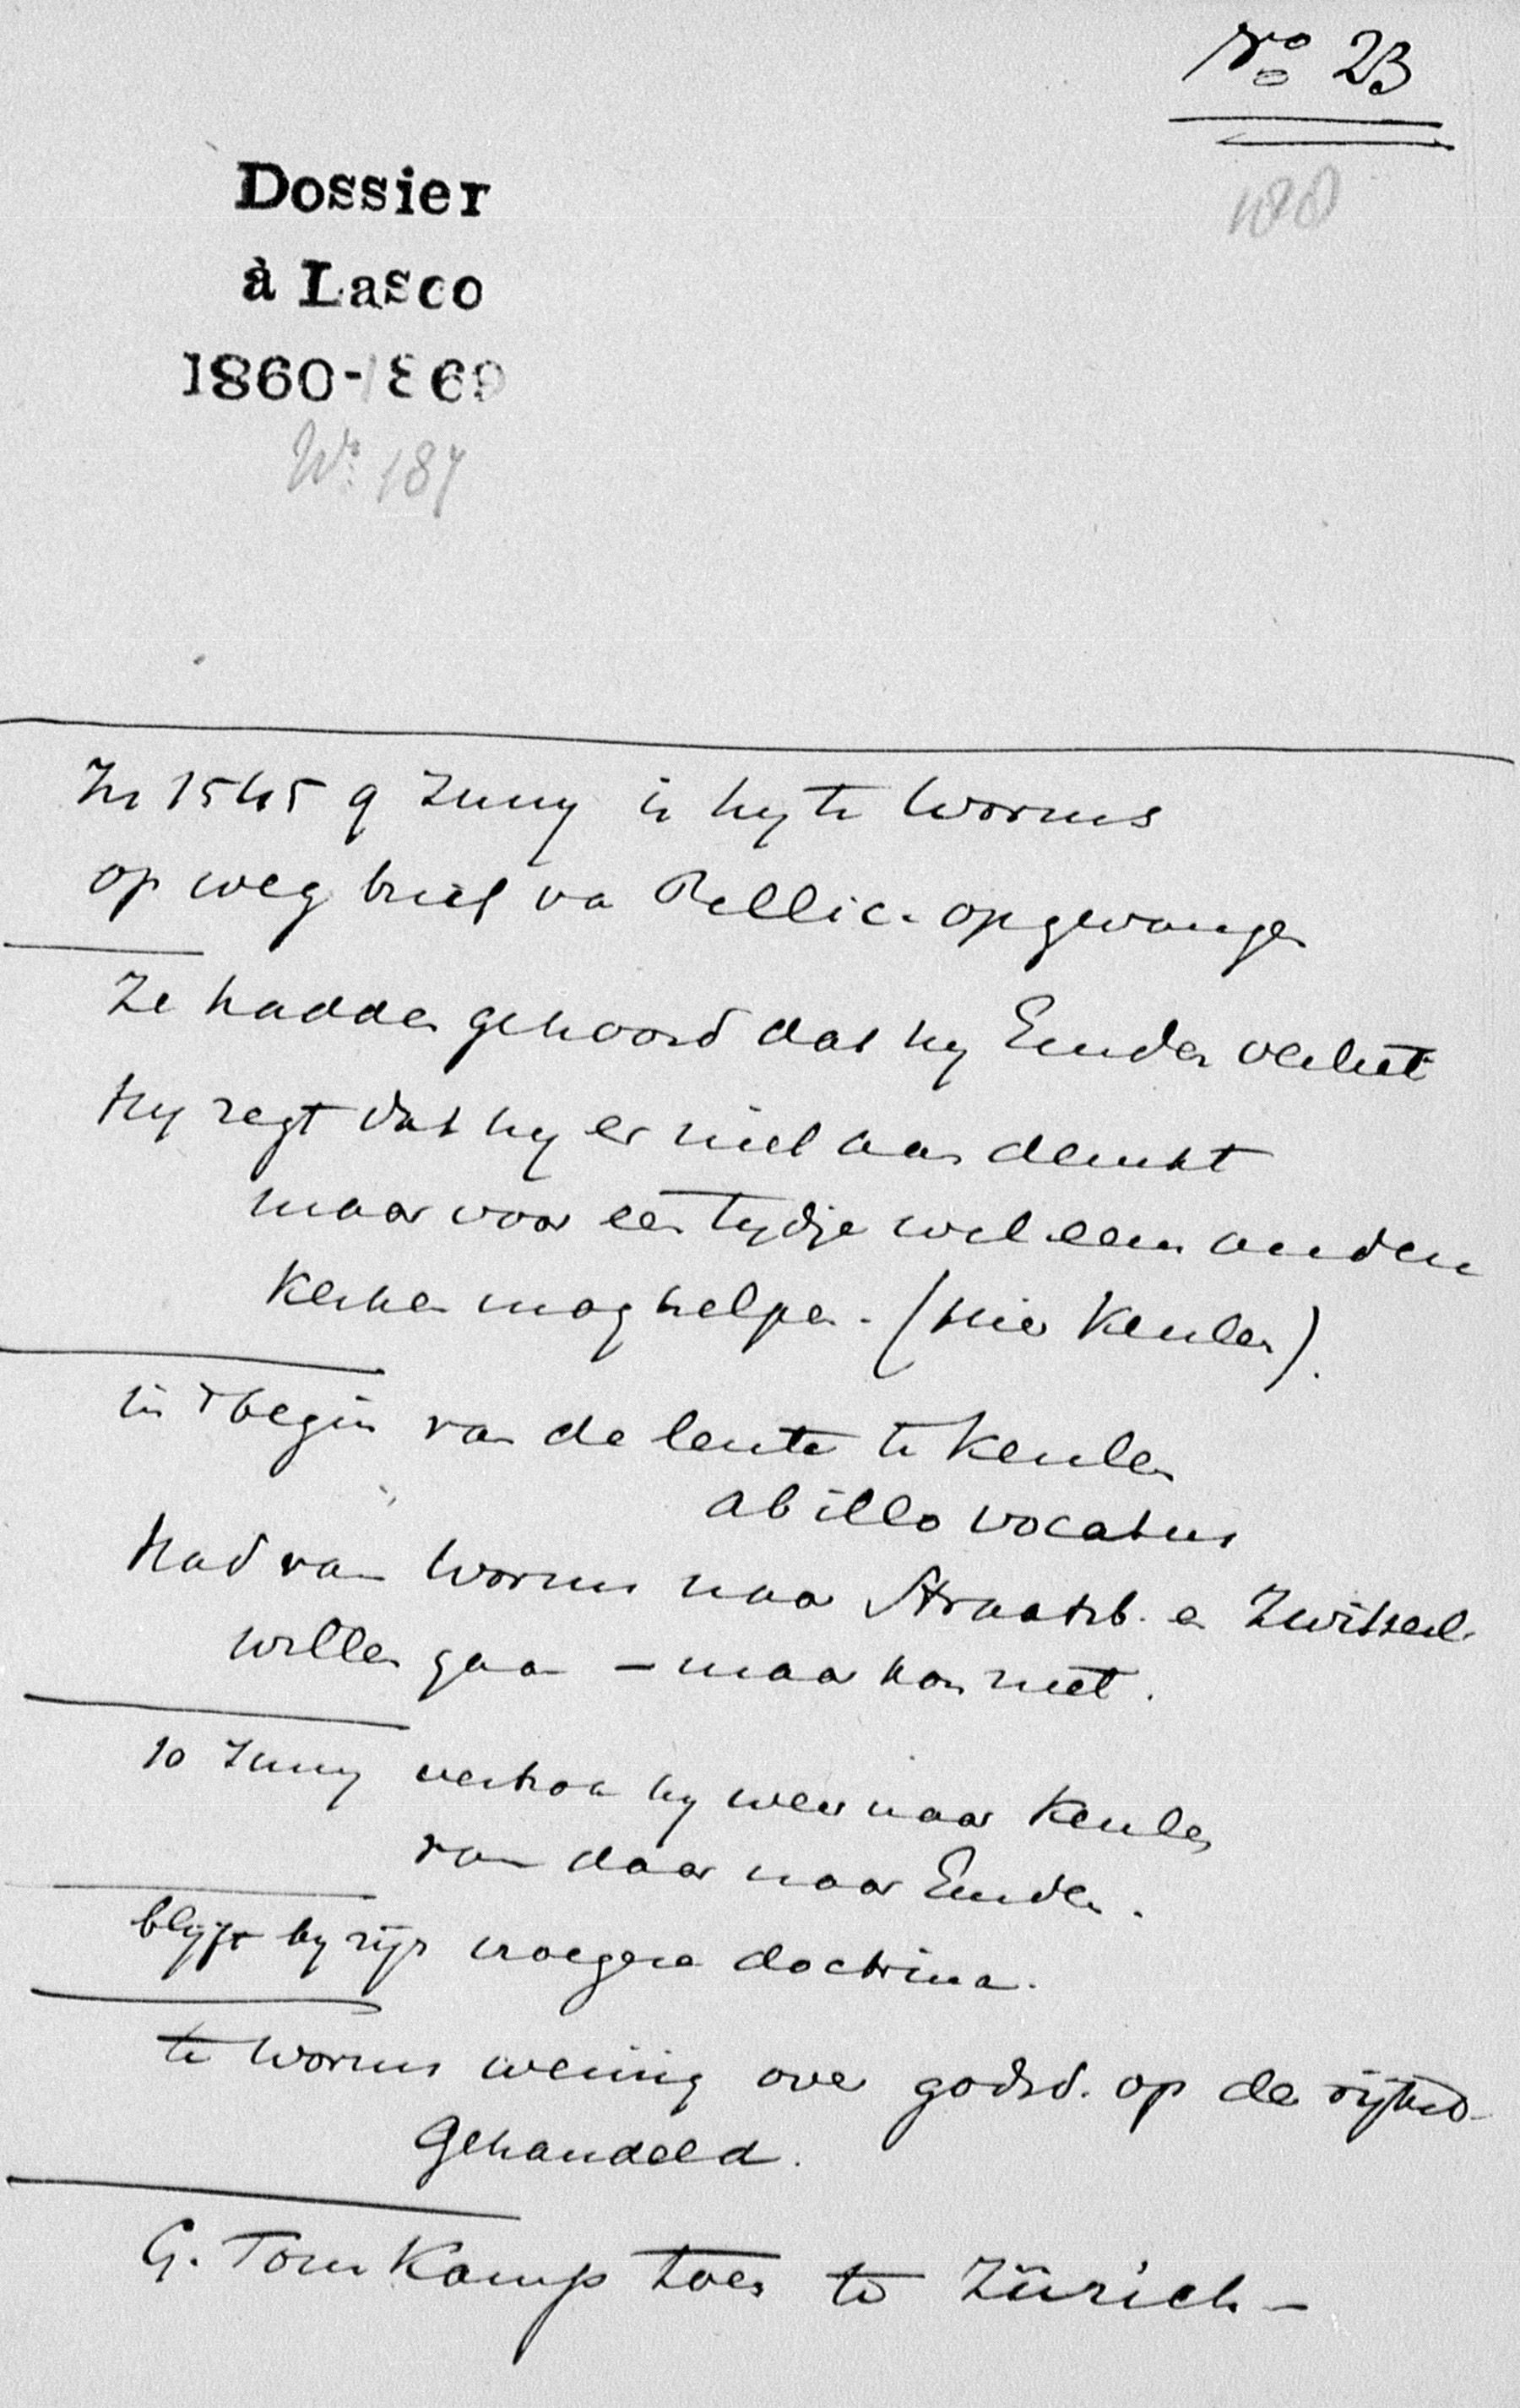 No 23
188
Dossier
à Lasco
1860-1869
No 187
In 1545 9 Juny is hy te Worms
op weg brief va Pellic. opgevangen
Ze hadden gehoord dat hy Emden verliet
hy zegt dat hy er niet aan denkt
maar voor een tydje wel een andere
Kerken mag helpen. (hier Keulen).
in 't begin van de lente te Keulen
ab illo vocatus
had van Worms naar Straatsb. en Zwitserl.
willen gaan – maar kon niet.
10 Juny vertrok hy weer naar Keulen
van daar naar Emden.
blyft by zijn vroegere doctrina.
te Worms weinig over godsd. op de rijksd.
Gehandeld.
G. Tom Kamp toen te Zürich –